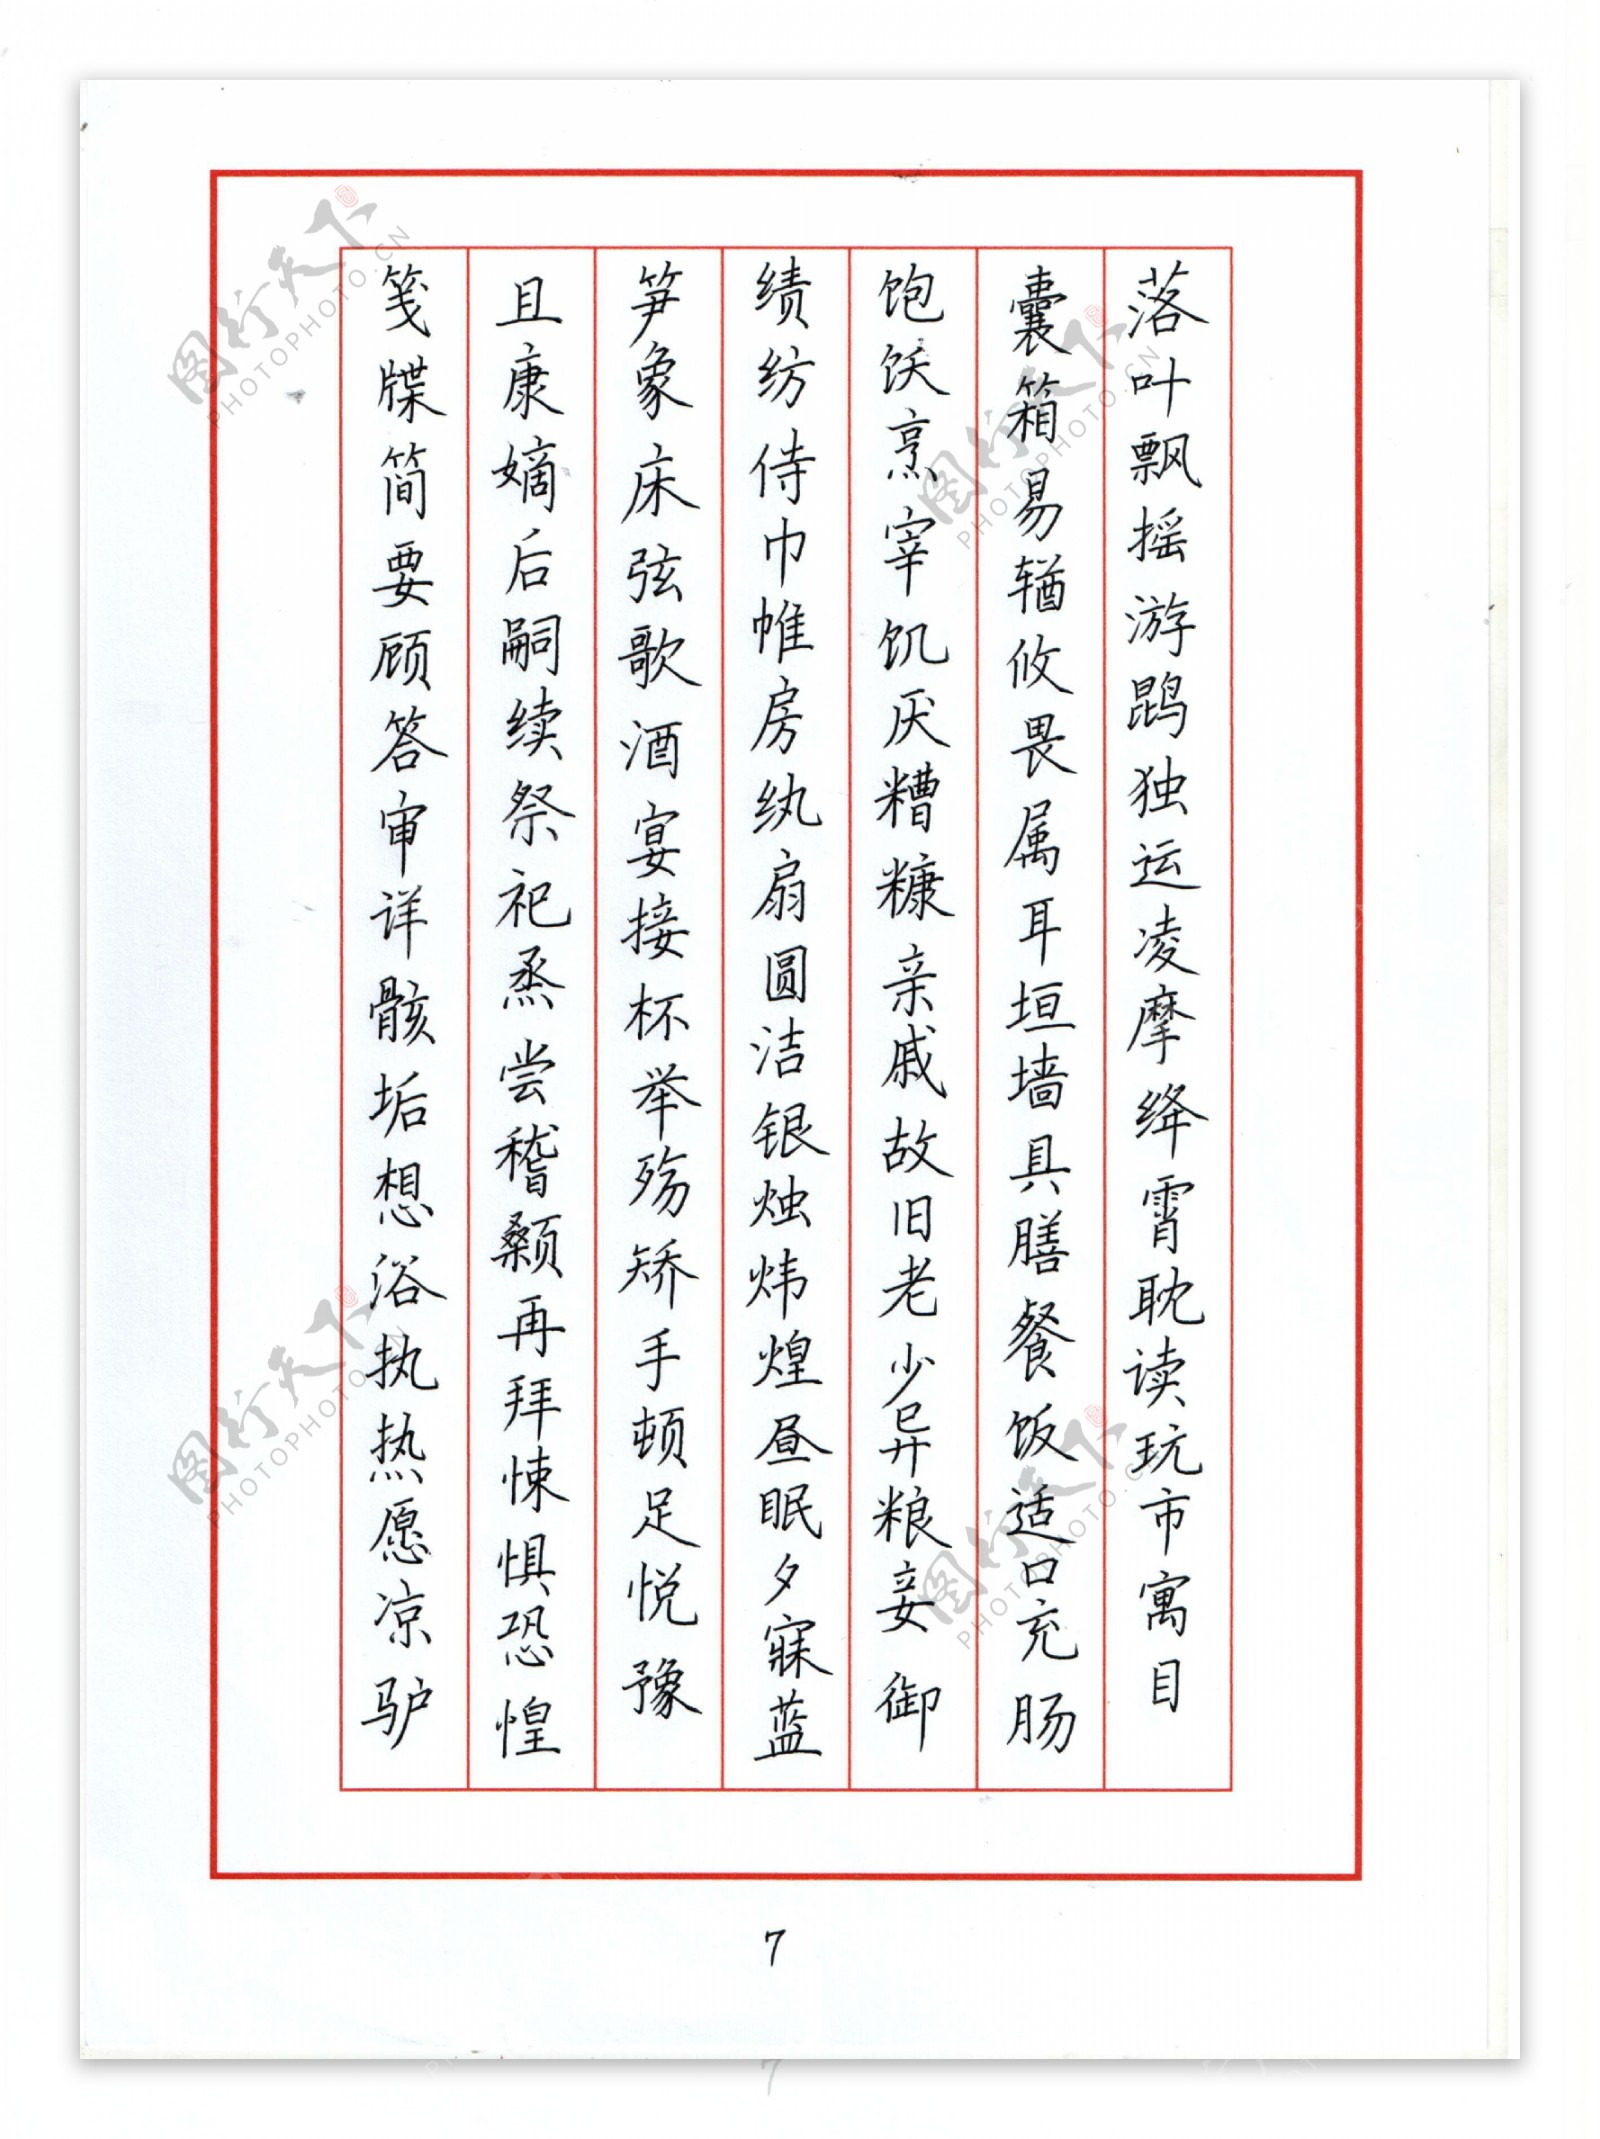 落叶飘摇游鹍独运凌摩绛霄耽读玩市寓目
囊箱易輶攸畏属耳垣墙具膳餐饭适口充肠
饱饫烹宰饥厌糟糠亲戚故旧老少异粮妾御
绩纺侍巾帷房纨扇圆洁银烛炜煌昼眠夕寐蓝
笋象床弦歌酒宴接杯举殇矫手顿足悦豫
且康嫡后嗣续祭祀烝尝稽颡再拜悚惧恐惶
笺牒简要顾答审详骸垢想浴执热愿凉驴
7
图行天下
PHOTOPHOTO.CN
图行天下
PHOTOPHOTO.CN
图行天下
PHOTOPHOTO.CN
图行天下
PHOTOPHOTO.CN
7